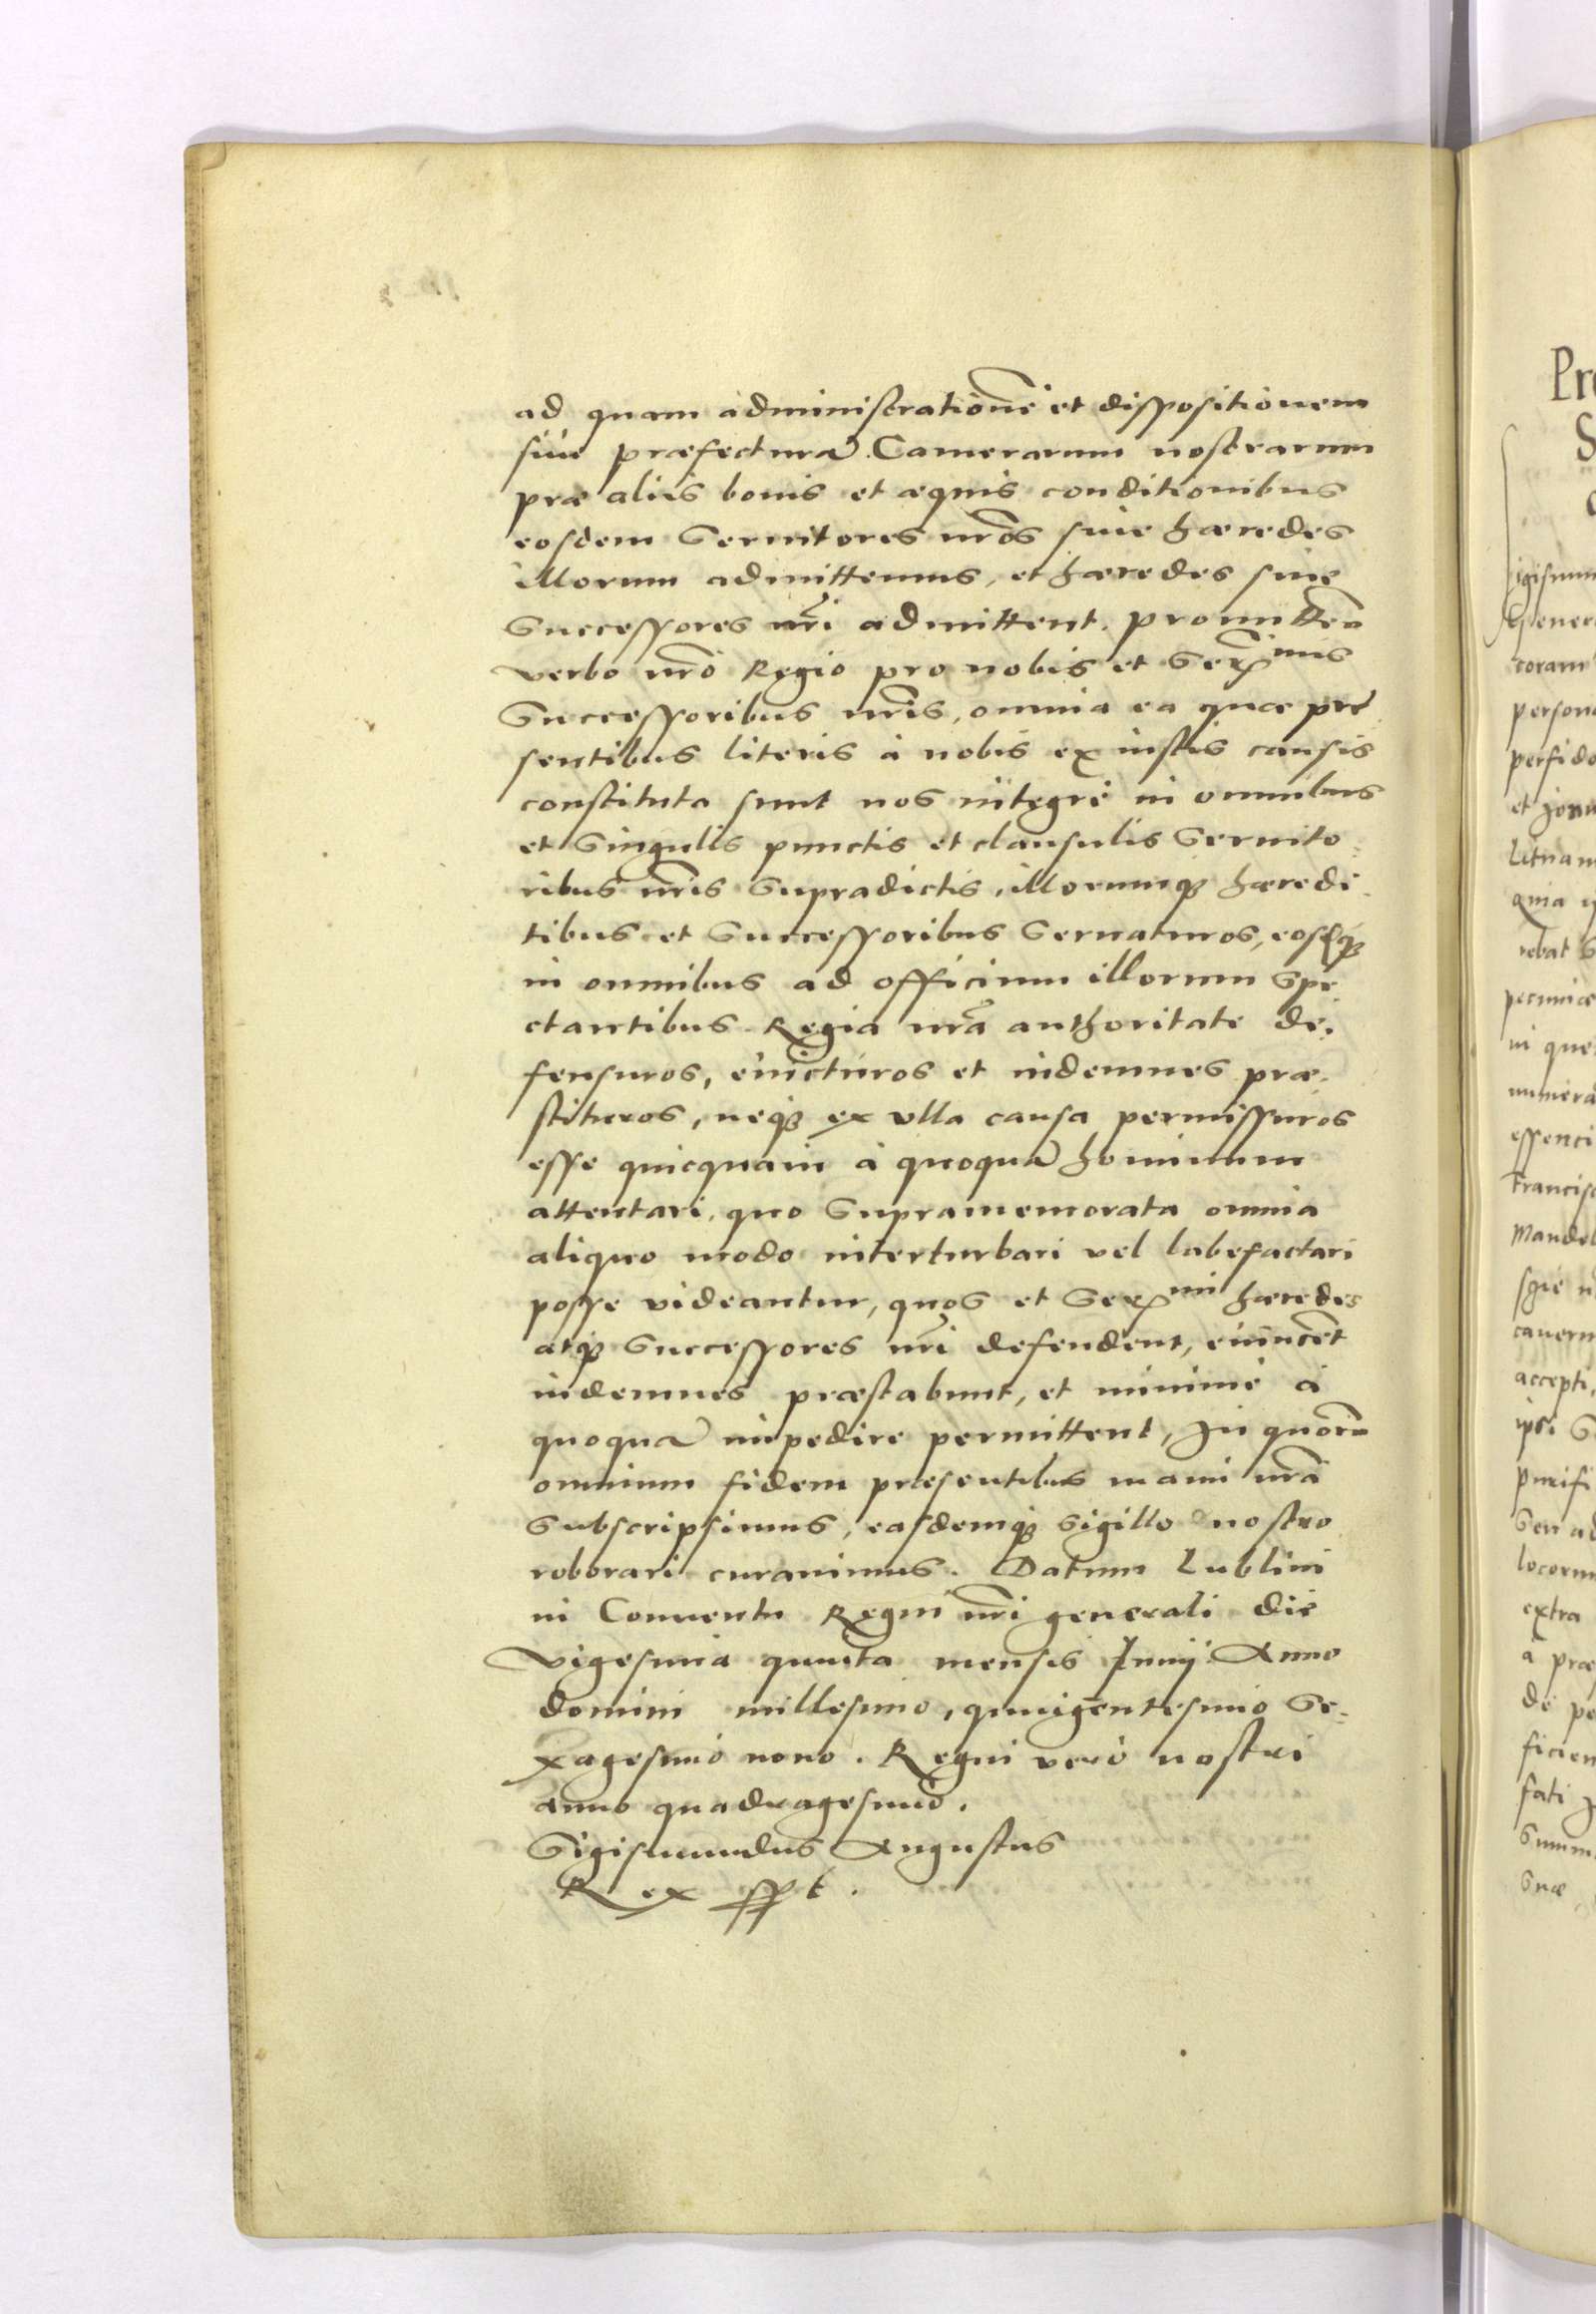 ad quam administrationē et dispositionem
siue præfecturā Camerarum nostrarum
præ aliis bonis et æquis conditionibus
eosdem Seruitores nr̃os siue hæredes
illorum admittemus, et hæredes siue
Successores nr̃i admittent. promitten̄
verbo nr̃o Regio pro nobis et Ser̃mis
Successoribus nr̃is, omnia ea quæ præ
sentibus literis à nobis ex iustis causis
constituta sunt nos integrè in omnibus
et Singulis punctis et clausulis Seruito=
ribus nr̃is Supradictis, illorumqȝ hæredi
tibus et Successoribus Seruaturos, eosqȝ
in omnibus ad officium illorum Spe
ctantibus Regia nr̃a authoritate de.
fensuros, euicturos et indemnes præ.
stituros, neqȝ ex vlla causa permissuros
esse quicquam à quoquā hominum
attentari, quo Supramemorata omnia
aliquo modo interturbari vel labefactari
posse videantur, quos et Ser̃mi hæredes
atqȝ Successores nr̃i defendent, euincēt
indemnes præstabunt, et minimè à
quoquā impedire permittent, In quorū
omnium fidem præsentibus manu nr̃a
Subscripsimus, easdemqȝ sigillo nostro
roborari curauimus. Datum Lublini
in Conuentu Regni nr̃i generali die
vigesima quinta mensis Junij Anno
domini millesimo, quingentesimo Se=
xagesimo nono. Regni verò nostri
anno quadragesimo.
Sigismundus Augustus
Rex sspt.
Pre
S
igismun
Genere
coram
persona
perfido
Lituan
quia
rebat S
pecuniæ
in que
numera
essenci
Francisc
Mandel
cauern
accepti,
ipsi S
purifi
Seu ad
locorum
extra
à præ
de pe
ficien
fati
Summ
Suæ